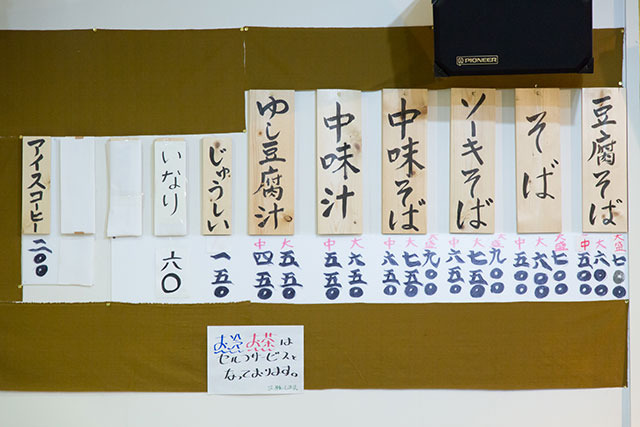 PIONEER
豆腐そば
大盛 七〇〇
大 六〇〇
中 五五〇
そば
大盛 七〇〇
大 六〇〇
中 五五〇
ソーキそば
大盛 九〇〇
大 七五〇
中 六五〇
中味そば
大盛 九〇〇
大 七五〇
中 六五〇
中味汁
大 六五〇
中 五五〇
ゆし豆腐汁
大 五五〇
中 四五〇
じゅうしい
一五〇
いなり
六〇
アイスコーヒー
二〇〇
お冷 お茶は
セルフサービスと
なっております。